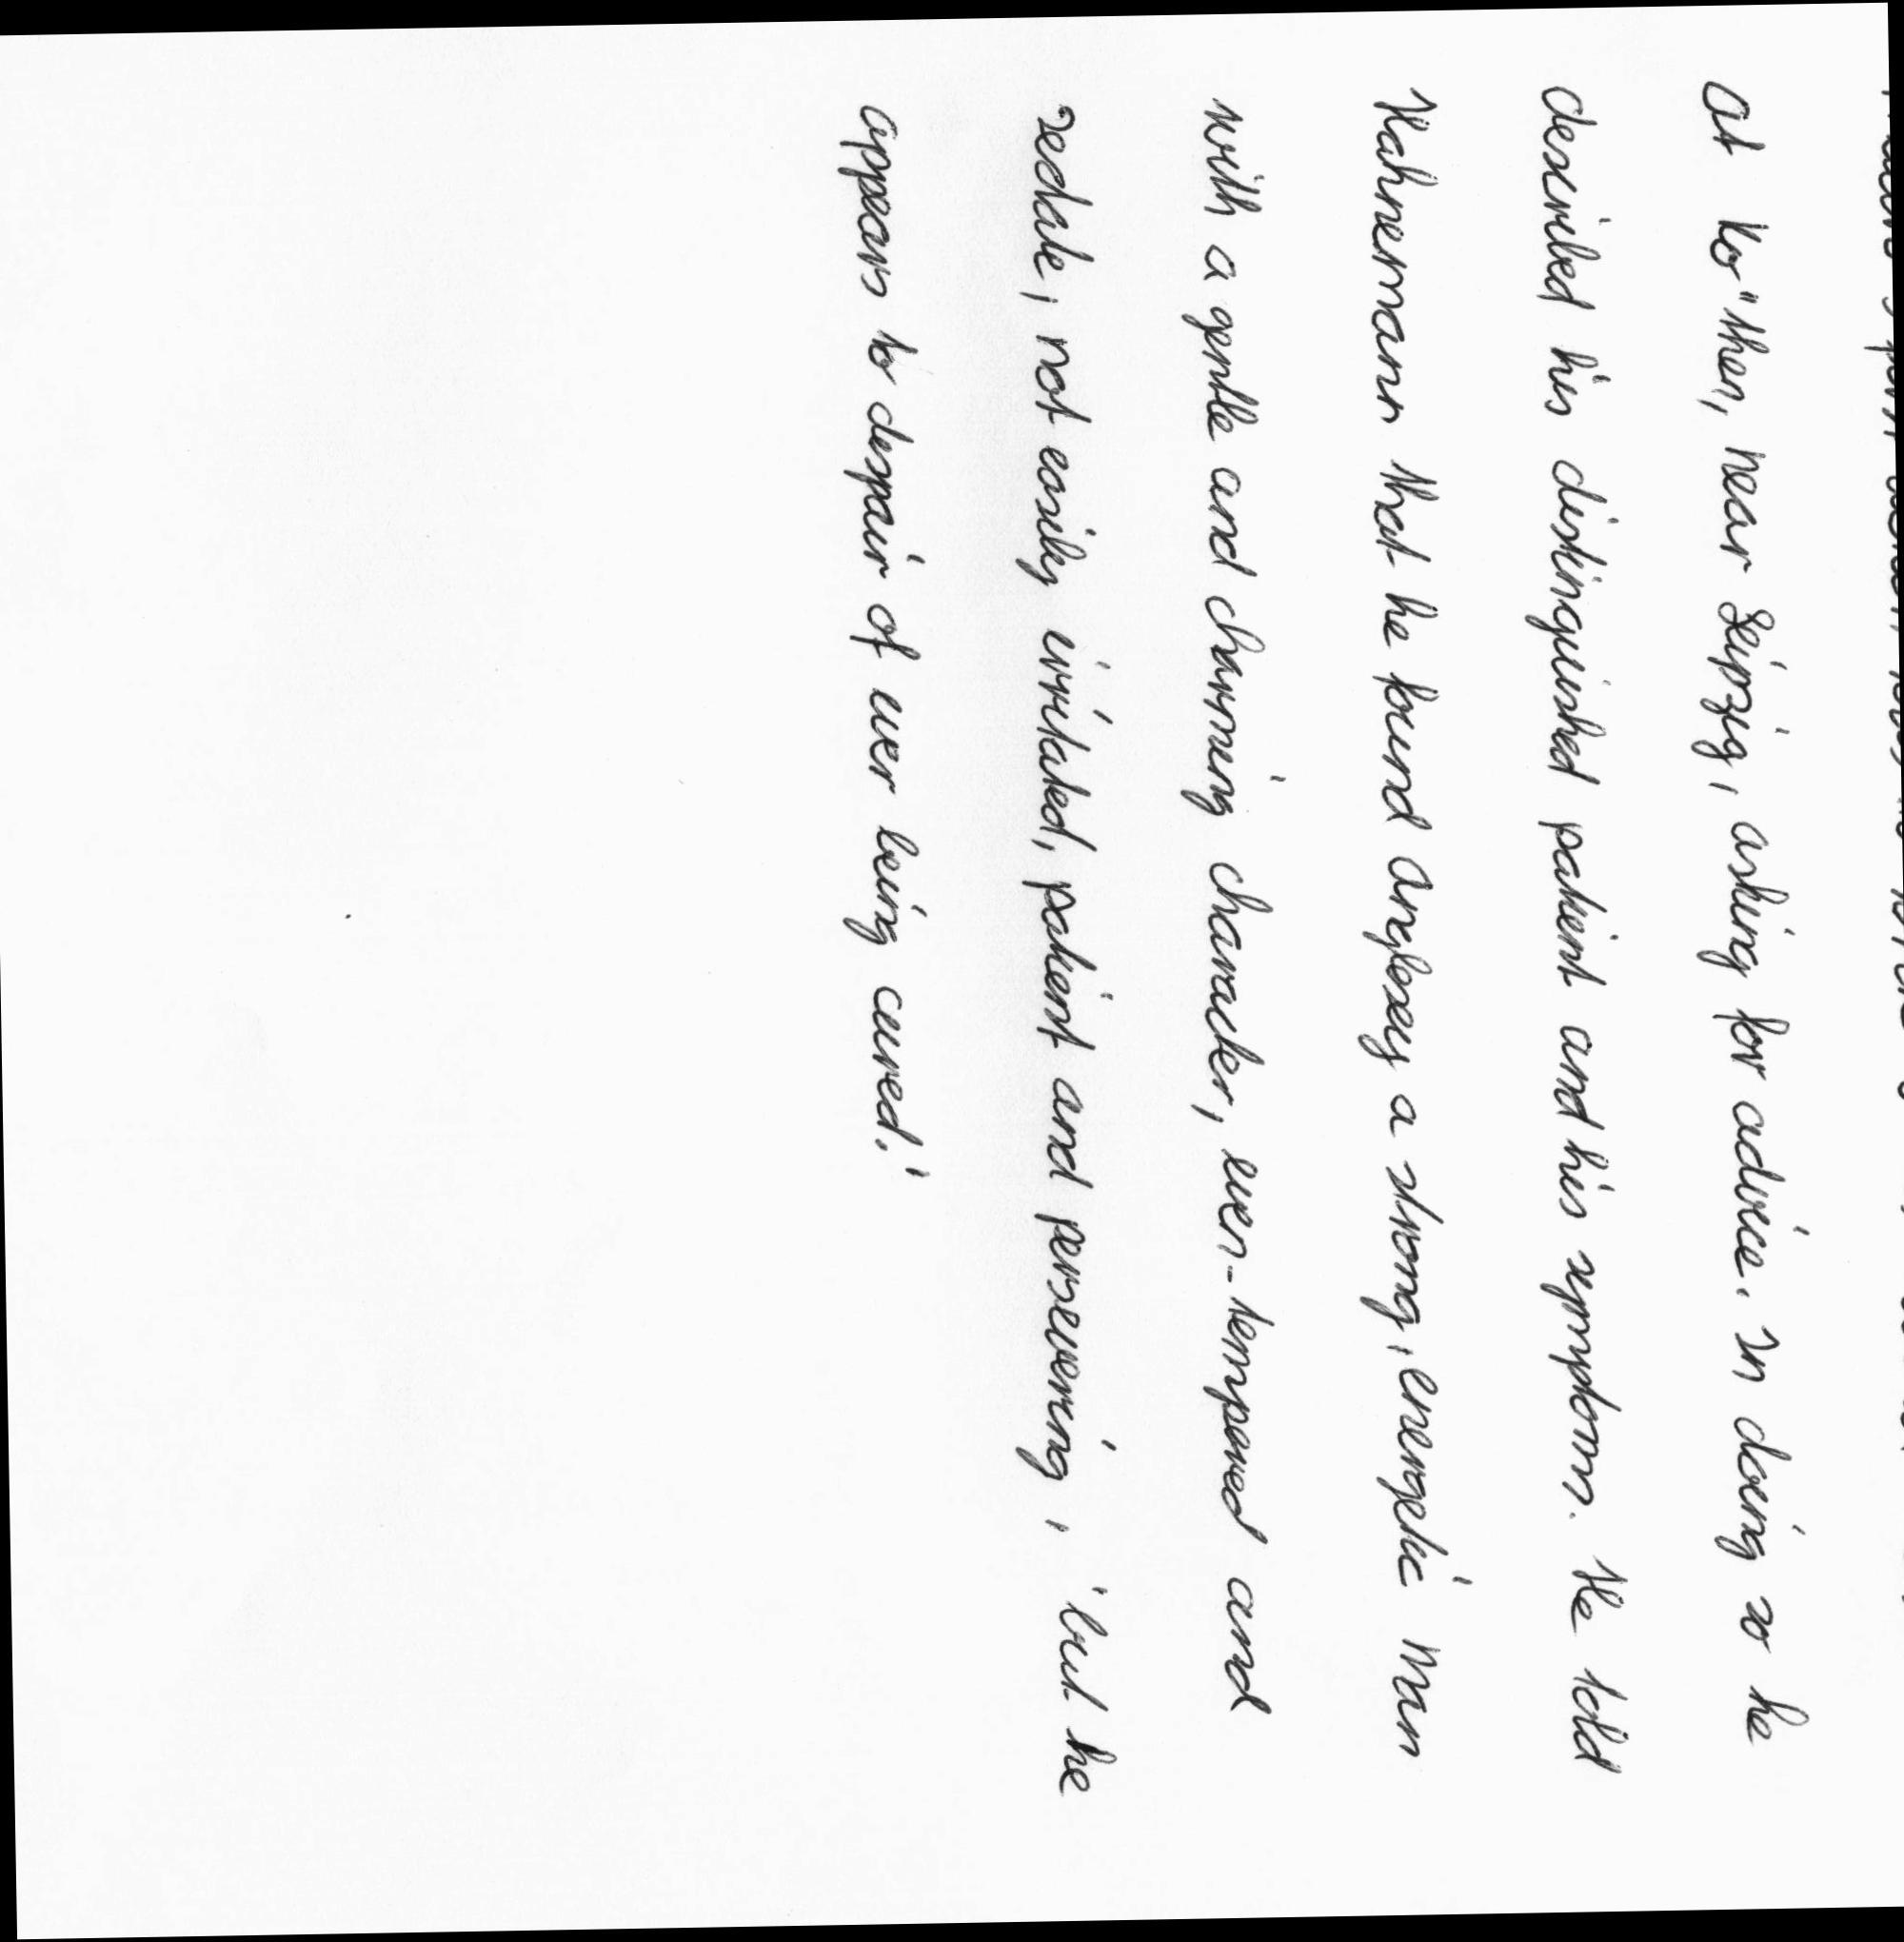 at Ko"then, near Leipzig, asking for advice. In doing so he
described his distinguished patient and his symptoms. He told
Hahnemann that he found Anglesey a strong, energetic man
with a gentle and charming character, even-tempered and
sedate, not easily irritated, patient and persevering, 'but he
appears to despair of ever being cured.'